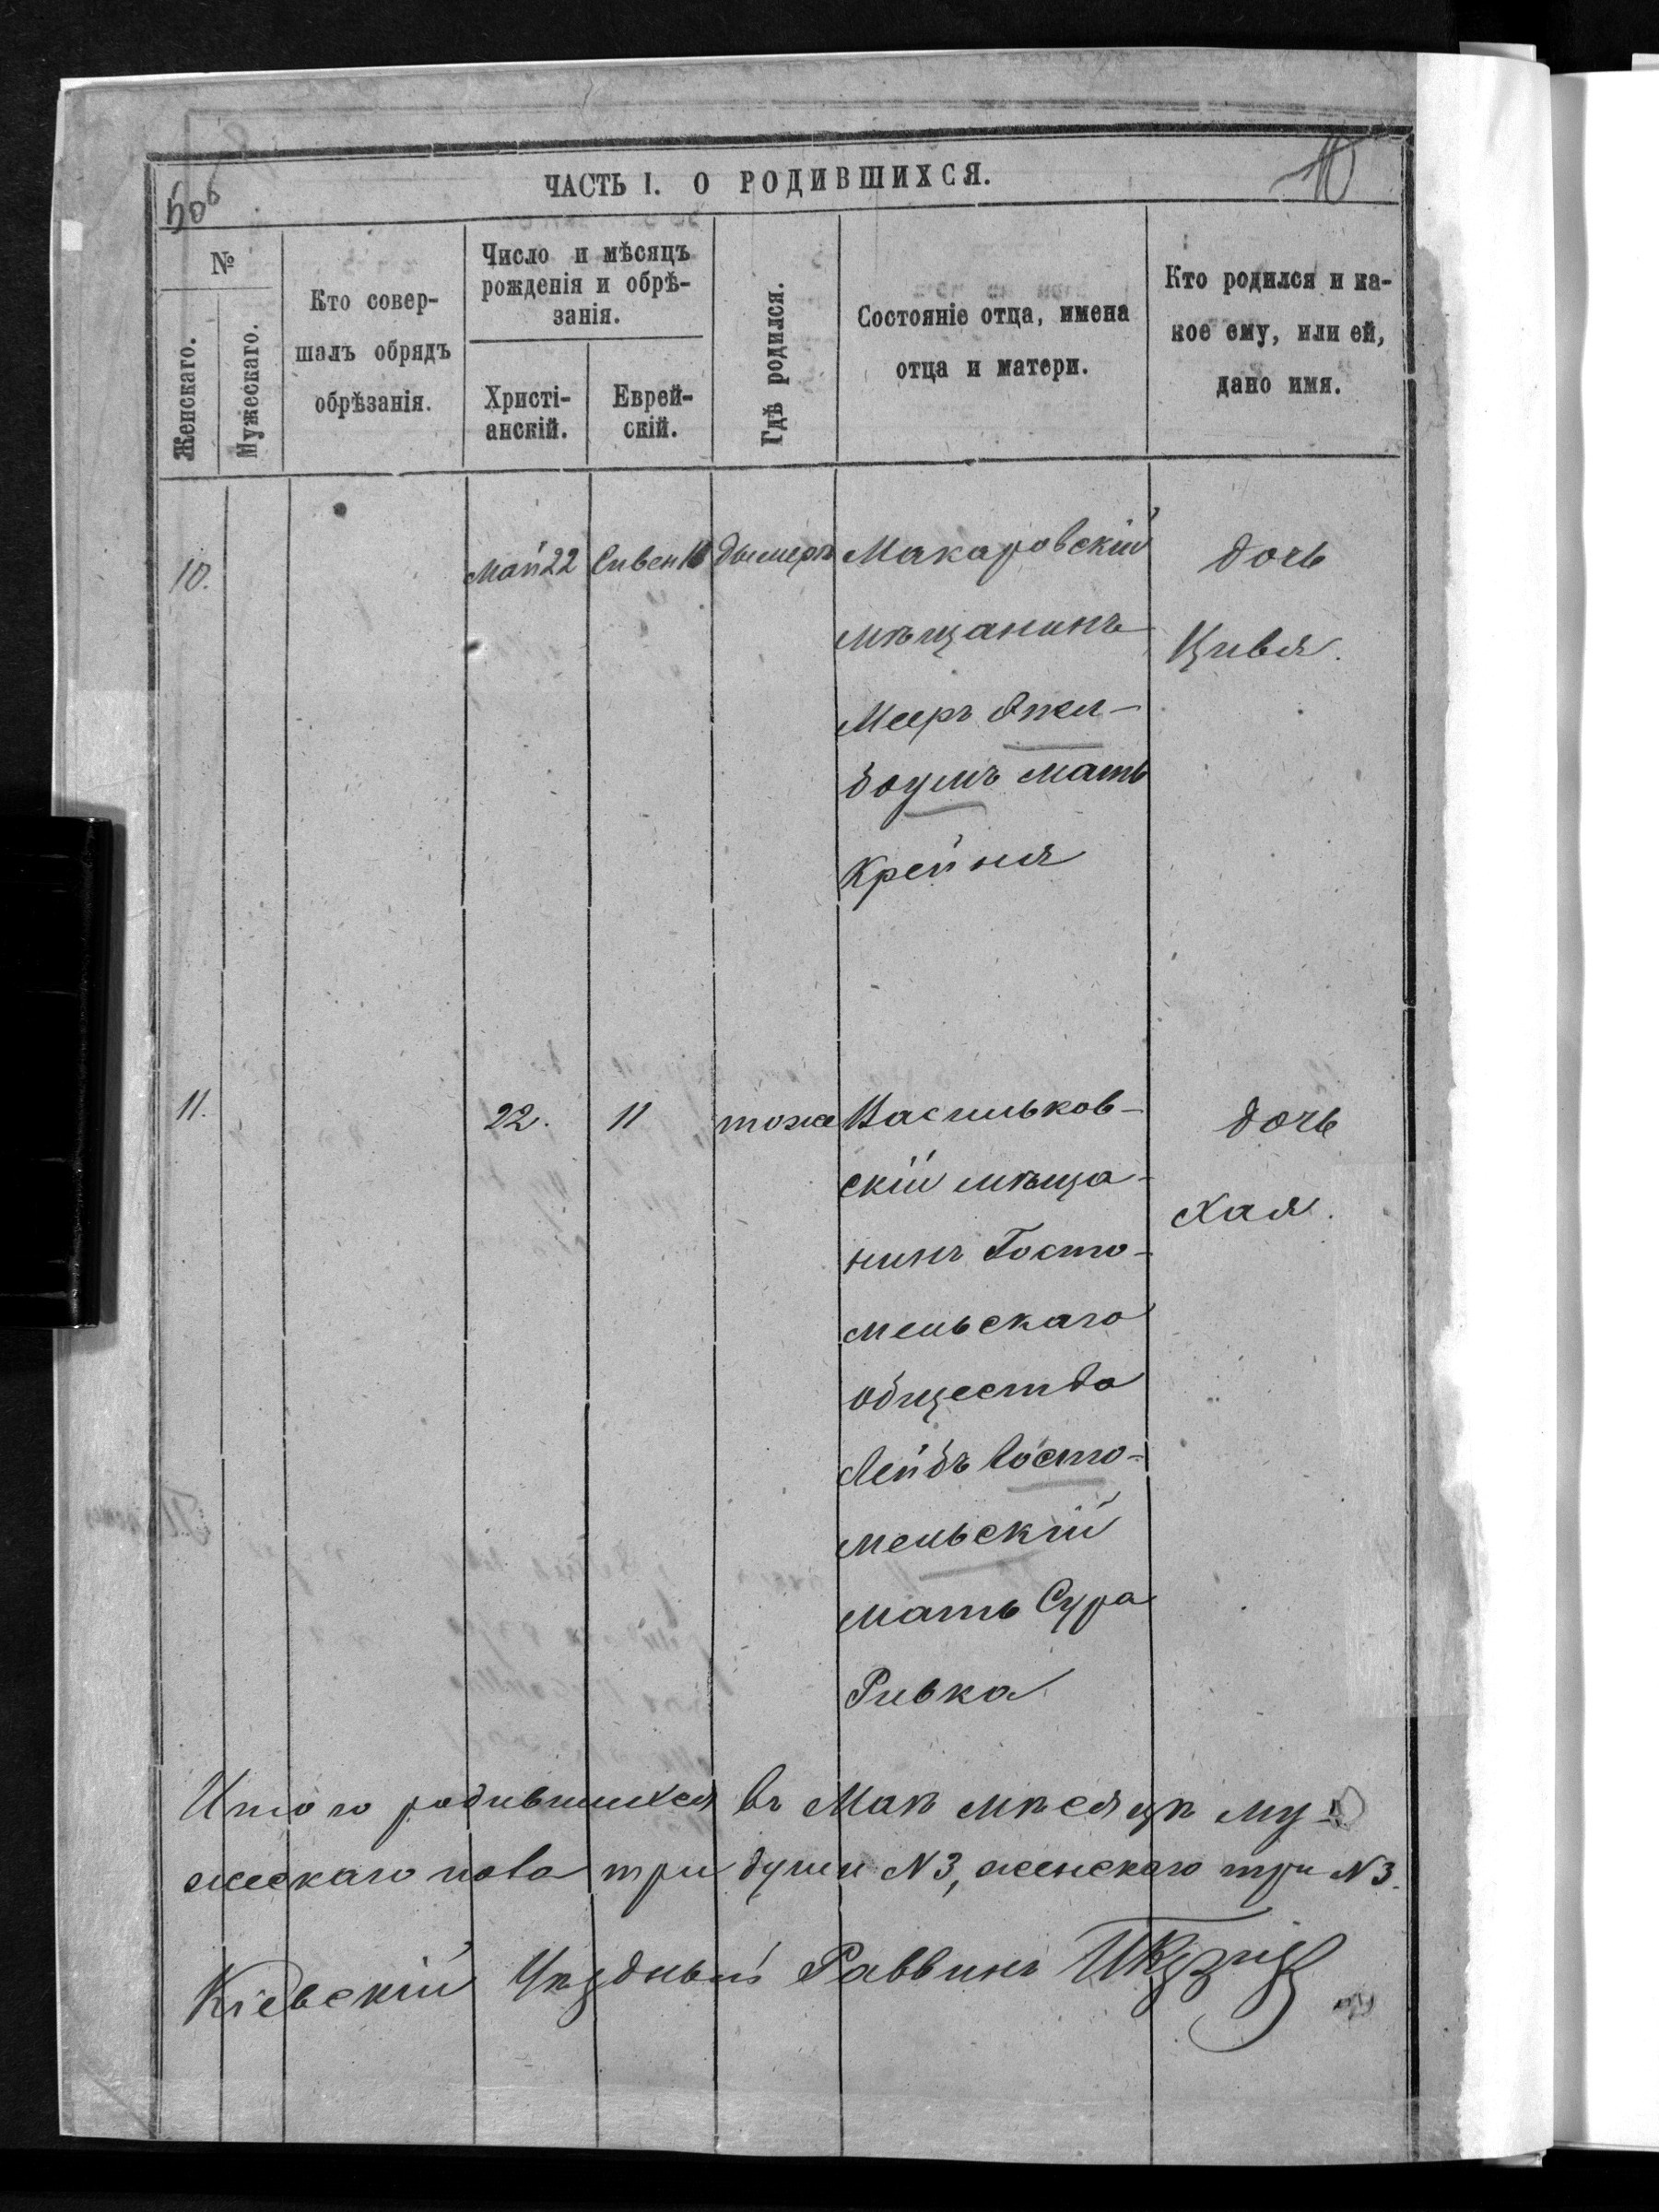 ЧАСТЬ I. О РОДИВШИХСЯ.
№
Женскаго.
Мужескаго.
Кто совер-
шалъ обрядъ
обрѣзанія.
Число и мѣсяцъ
рожденія и обрѣ-
занія.
Христі-
анскій.
Еврей-
скій.
Гдѣ родился.
Состояніе отца, имена
отца и матери.
Кто родился и ка-
кое ему, или ей,
дано имя.
10. Май 22 Сивен Дымеръ Макаровскій дочь
мѣщанинъ Цивя.
Мееръ
боумъ мать
Крейня
11. 22. 11 тоже Васильков- дочь
скій мѣща- Хая.
нинъ Госто-
мельскаго
общества
Лейбъ Госто-
мельскій
мать Сура
Ривка
Итого родившихся въ Маѣ мѣсяцѣ му-
жескаго пола три души №3, женскаго три №3.
Кіевскій Уѣздный Раввинъ